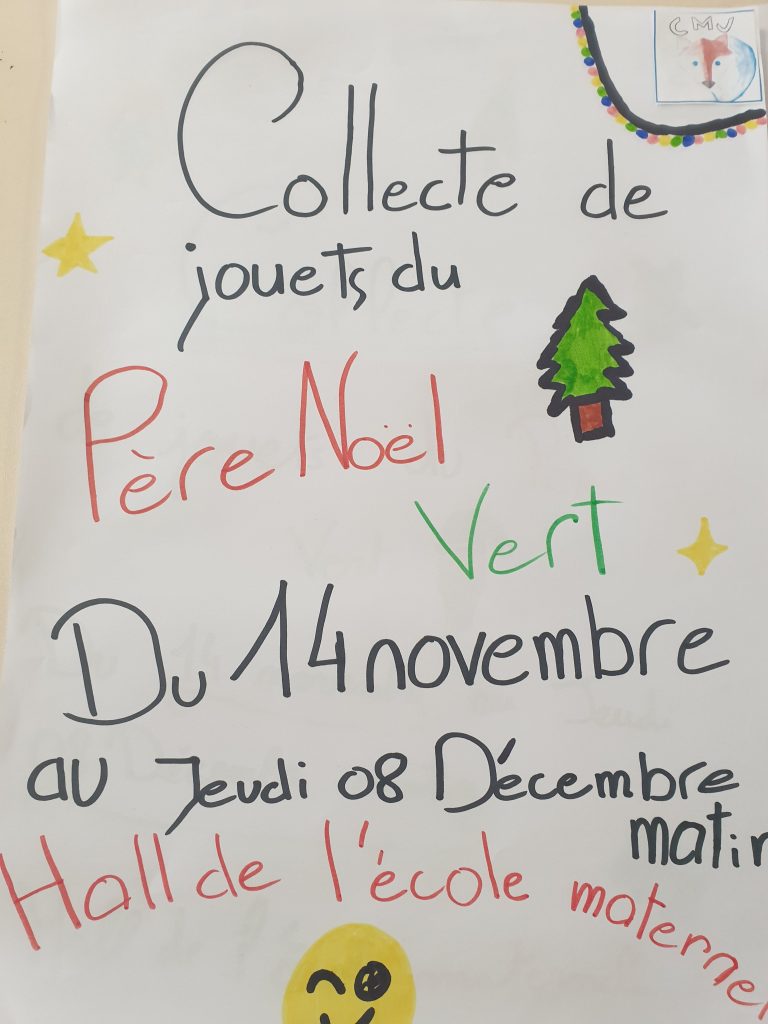 CMJ
Collecte de
jouets du
Père Noël
Vert
Du 14 novembre
au Jeudi 08 Décembre
matin
Hall de l'école maternel